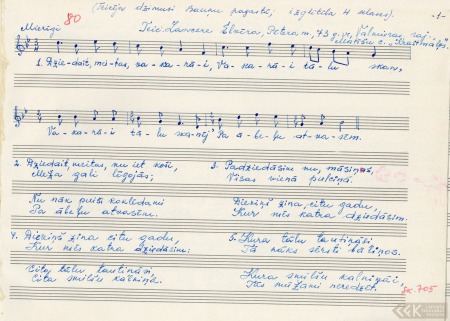 (Teicēja dzimusi Bauņu pagastā, izglītība 4 klases).
-1-
80
Mierīgi
Teic. Zanvere Elvēra, Pētera m., 73 g. v., Valmieras raj.
"Krastmaļi".
1. Dzie-dait, mei-tas, va-ka-rā-i, Va-ka-rā-i tā-lu skan,
Va-ka-rā-i tā-lu ska-nēj' Pa ā-be-ļu at-va-sēm.
2. Dziedait, meitas, nu iet koši,
Meža gali līgojās;
Nu nāk puiši koklēdami
Pa ābeļu atvasēm.
3. Padziedāsim nu, māsiņas,
Visas vienā pulciņā.
Dieviņš zina citu gadu,
Kur mēs katra dziedāsim.
4. Dieviņš zina citu gadu,
Kur mēs katra dziedāsim:
Cita tālu tautiņās,
Cita smilšu kalniņā.
5. Kura tālu tautiņās,
Tā nāks sērsti bāliņos.
Kura smilšu kalniņāi,
Tās mūžam neredzēt.
sk. 705